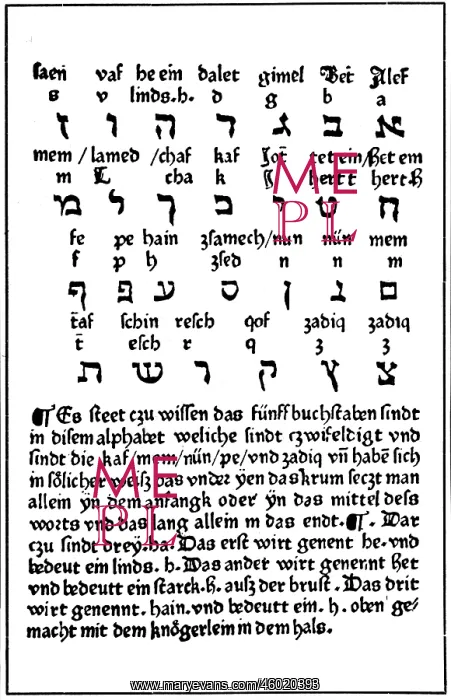 saen vaf he ein dalet gimel Bet Alef
s v linds.h. d g b a
א ב ג ד ה ו ז
mem / lamed /chaf kaf Jot tet ein/Het em
m L cha k J hert t hert h
ח ט י כ ך ל מ
fe pe hain zsamech/nun nűn mem
f p h zsed n n m
ם נ ן ס ע פ ף
taf schin resch qof zadiq zadiq
t esch r q z z
צ ץ ק ר ש ת
¶ Es steet czu wissen das fünff buchstaben sindt
in disem alphabet weliche sindt czwifeldigt vnd
sindt die kaf/mem/nűn/pe/vnd zadiq vn̄ habē sich
in sőlicher weisz das vnder ÿen das krum seczt man
allein ÿn dem anfangk oder ÿn das mittel dess
worts vnd das lang allein in das endt.¶. Dar
czu sindt dreÿ.ha. Das erst wirt genent he.vnd
bedeut ein linds. h. Das ander wirt genennt het
vnd bedeutt ein starck.h. ausz der brust. Das drit
wirt genennt. hain. vnd bedeutt ein. h. oben ge⸗
macht mit dem knőgerlein in dem hals.
ME
PL
ME
PL
www.maryevans.com/46020393